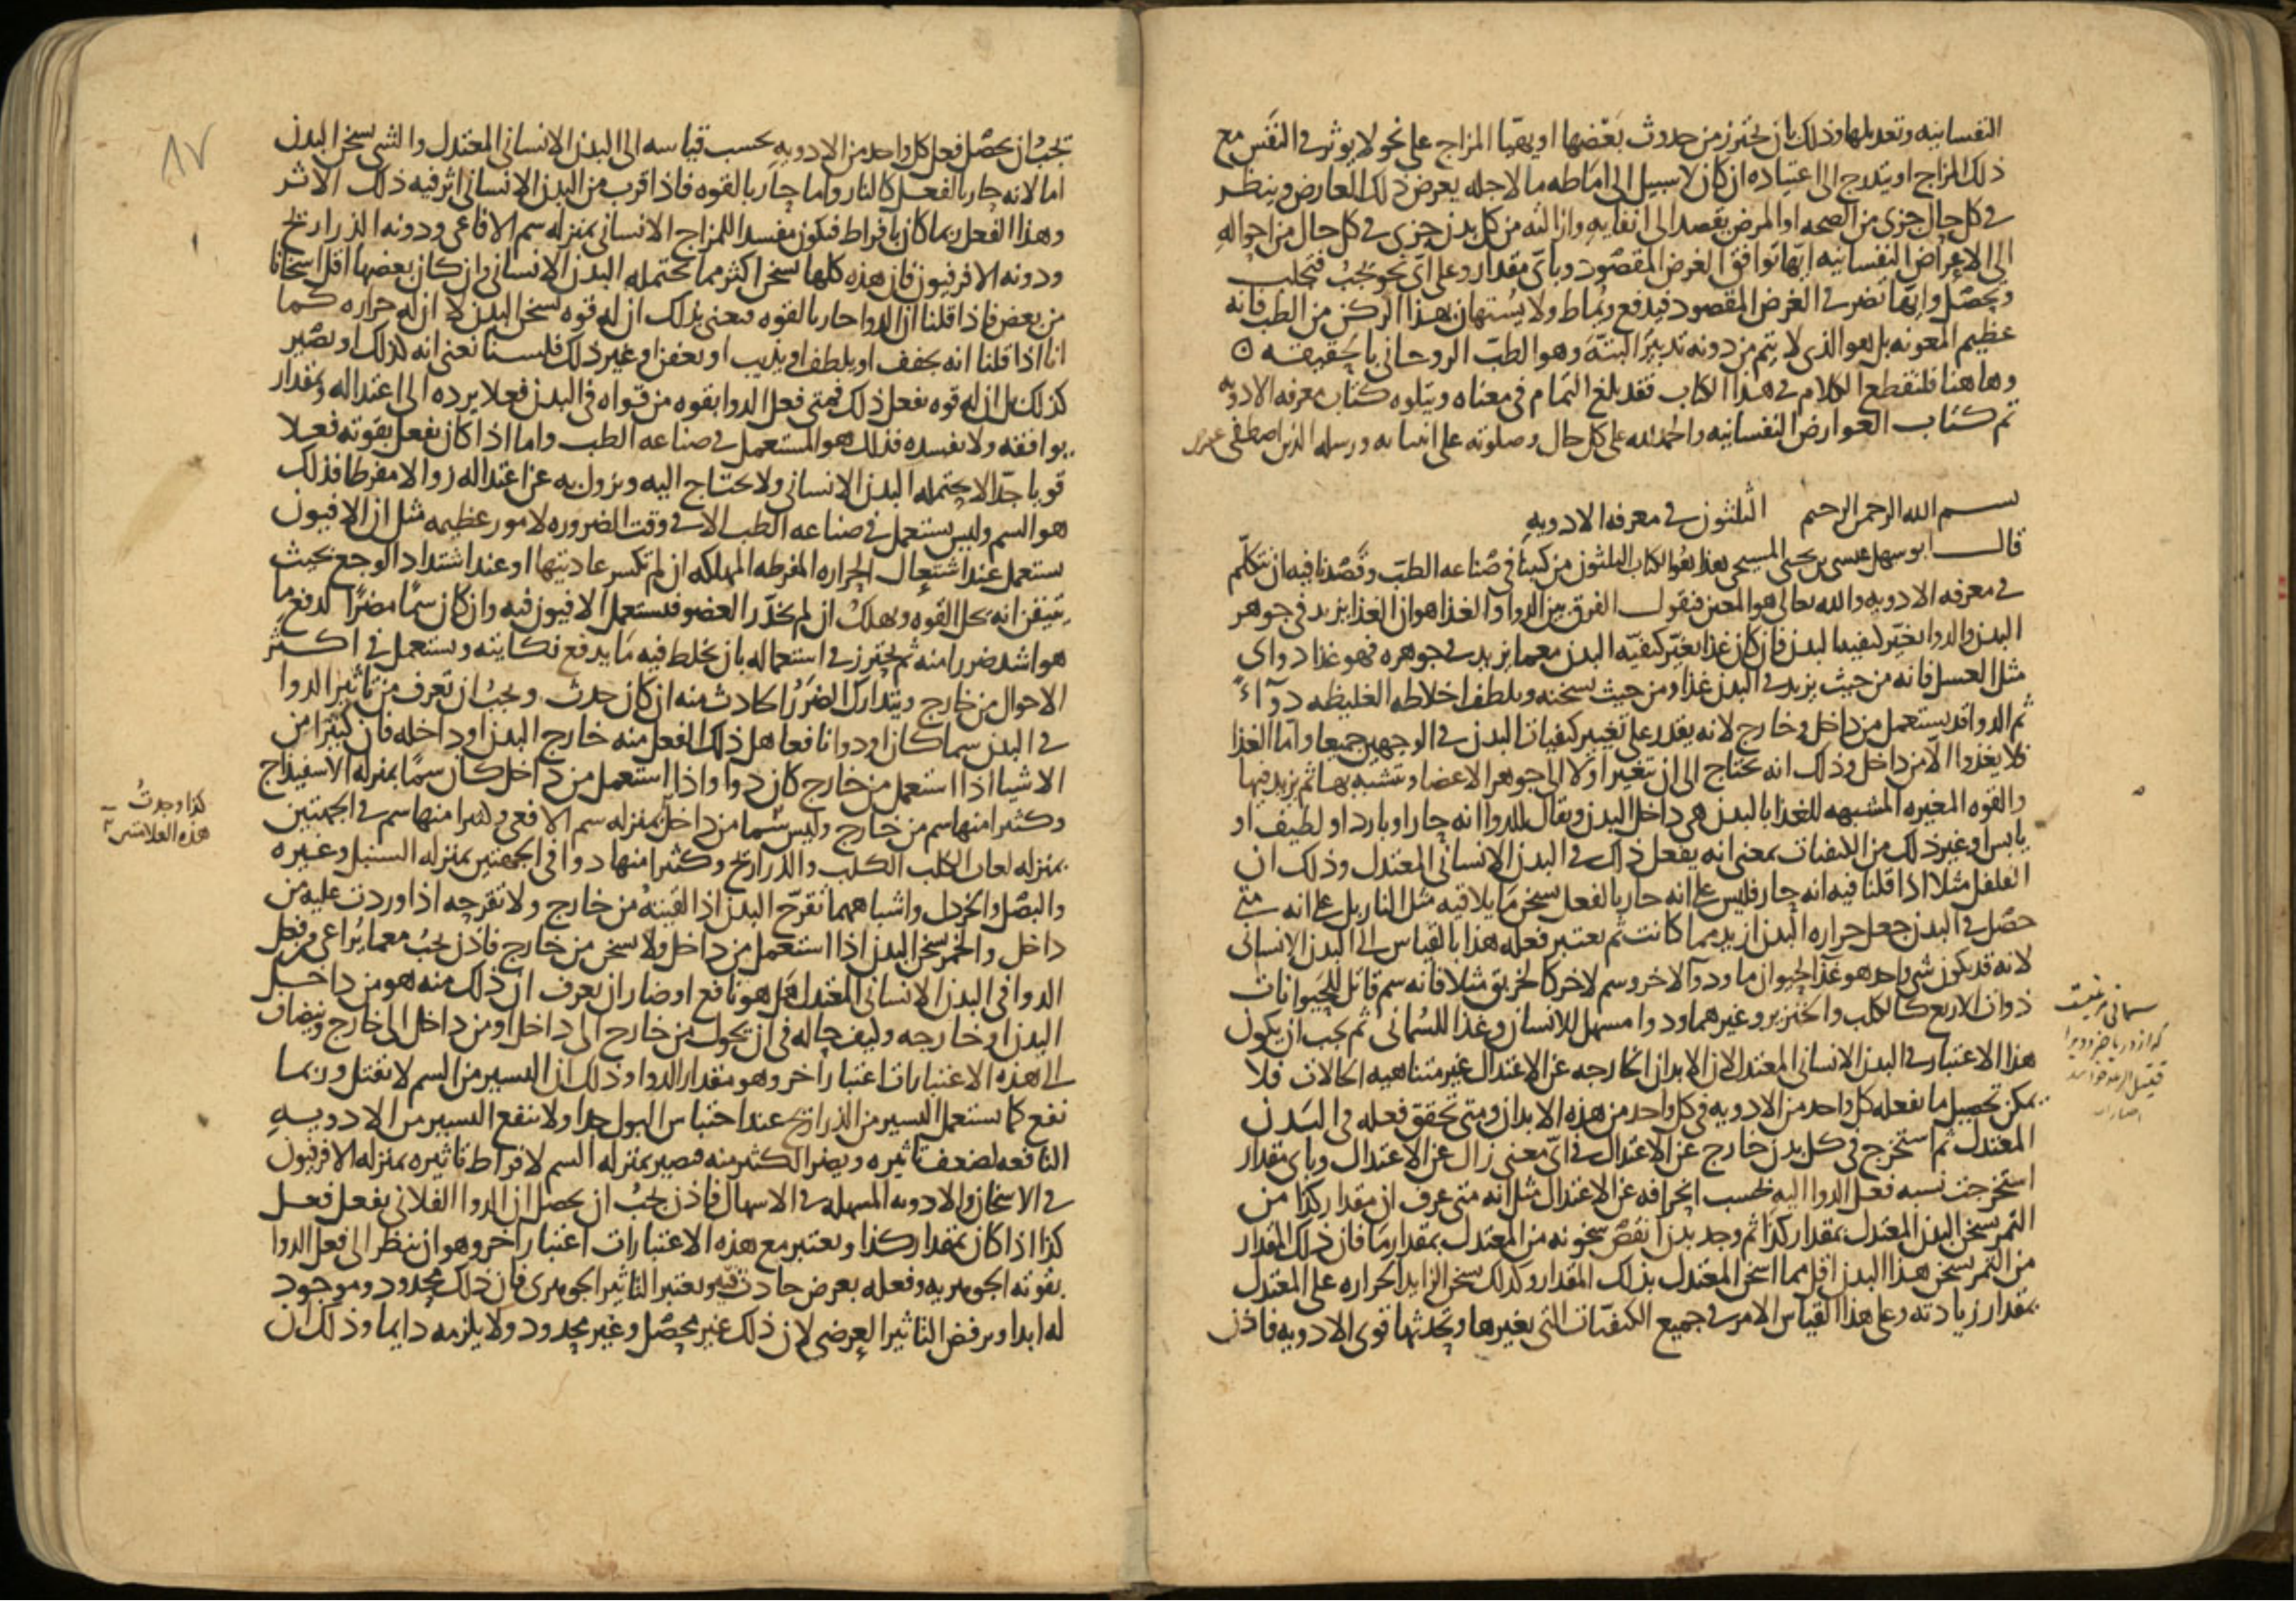 النفسانيه وتعديلها وذلك بان يحترز من حدوث بعضها او يهيا المزاج على نحو لا يوثر في النفس مع
ذلك المزاج او يتدرج الى اعتياده ان كان لا سبيل الى اماطه ما لاجله يعرض ذلك العارض وينظر
في كل حال جزى من الصحه او المرض يقصد الى ابقايه وازالته من كل بدن جزى في كل حال من احواله
الى الاعراض النفسانيه ايها توافق الغرض المقصود وباى مقدار وعلى اى نحو يجب فتجلب
وتحصل وايها تضر في الغرض المقصود فيدفع ويماط ولا يستهان بهذا الركن من الطب فانه
عظيم المعونه بل هو الذى لا يتم من دونه تدبير البته وهو الطب الروحانى بالحقيقه
وهاهنا فلنقطع الكلام في هذا الكتاب فقد بلغ التمام في معناه ويتلوه كتاب معرفه الادويه
تم كتاب العوارض النفسانيه والحمد لله على كل حال وصلوته على انبيايه ورسله الذين اصطفى
بسم الله الرحمن الرحيم الثلثون في معرفه الادويه
قال ابو سهل عيسى بن يحيى المسيحى هذا هو الكتاب الثلثون من كتبنا في صناعه الطب وقصدنا فيه ان نتكلم
في معرفه الادويه والله تعالى هو المعين فنقول الفرق بين الدوا والغذا هو ان الغذا يزيد في جوهر
البدن والدوا يغير كيفيه البدن فان كان غذا يغير كيفيه البدن مع ما يزيد في جوهره فهو غذا دواى
مثل العسل فانه من حيث يزيد في البدن غذا ومن حيث يسخنه ويلطف اخلاطه الغليظه دوآء
ثم الدوا قد يستعمل من داخل وخارج لانه يقدر على تغيير كيفيات البدن في الوجهين جميعا واما الغذا
فلا يغذوا الا من داخل وذلك انه يحتاج الى ان يتغير اولا الى جوهر الاعضا ويتشبه بها ثم يزيد فيها
والقوه المغيره المشبهه للغذا بالبدن هى داخل البدن ويقال للدوا انه حار او بارد او لطيف او
يابس او غير ذلك من الكيفيات بمعنى انه يفعل ذلك في البدن الانسانى المعتدل وذلك ان
الفلفل مثلا اذا قلنا فيه انه حار فليس على انه حار بالفعل يسخن ما يلاقيه مثل النار بل على انه متى
حصل في البدن جعل حراره البدن ازيد مما كانت ثم يعتبر فعله هذا بالقياس الى البدن الانسانى
لانه قد يكون شى واحد هو غذا لحيوان ما ودوآ لاخر وسم لاخر كالخربق مثلا فانه سم قاتل للحيوانات
ذوات الاربع كالكلب والخنزير وغيرهما ودوا مسهل للانسان وغذا للسمانى ثم يجب ان يكون
هذا الاعتبار في البدن الانسانى المعتدل لان الابدان الخارجه عن الاعتدال غير متناهيه الحالات فلا
يمكن تحصيل ما يفعله كل واحد من الادويه في كل واحد من هذه الابدان ومتى تحقق فعله في البدن
المعتدل ثم استخرج في كل بدن خارج عن الاعتدال في اى معنى زال عن الاعتدال وباى مقدار
استخرجت نسبه فعل الدوا اليه بحسب انحرافه عن الاعتدال مثل انه متى عرف ان مقدار كذا من
التمر يسخن البدن المعتدل بمقدار كذا ثم وجد بدن انقص سخونه من المعتدل بمقدار ما فان ذلك المقدار
من التمر يسخن هذا البدن اقل مما اسخن المعتدل بذلك المقدار وكذلك يسخن الزايد الحراره على المعتدل
بمقدار زيادته وعلى هذا القياس الامر في جميع الكيفيات التى يغيرها ويحدثها قوى الادويه فاذن
يجب ان يحصل فعل كل واحد من الادويه بحسب قياسه الى البدن الانسانى المعتدل والشى يسخن البدن
اما لانه حار بالفعل كالنار واما حار بالقوه فاذا قرب من البدن الانسانى اثر فيه ذلك الاثر
وهذا الفعل ربما كان بافراط فيكون مفسدا للمزاج الانسانى بمنزله سم الافاعى ودونه الذراريح
ودونه الافرفيون فان هذه كلها تسخن اكثر مما يحتمله البدن الانسانى وان كان بعضها اقل اسخانا
من بعض فاذا قلنا ان الدوا حار بالقوه نعنى بذلك ان له قوه تسخن البدن لا ان له حراره كما
انا اذا قلنا انه يجفف او يلطف او يذيب او يعفن او غير ذلك فلسنا نعنى انه كذلك او يصير
كذلك بل ان له قوه يفعل ذلك فمتى فعل الدوا بقوه من قواه في البدن فعلا يرده الى اعتداله وبمقدار
يوافقه ولا يفسده فذلك هو المستعمل في صناعه الطب واما اذا كان يفعل بقوته فعلا
قويا جدا لا يحتمله البدن الانسانى ولا يحتاج اليه ويزول به عن اعتداله زوالا مفرطا فذلك
هو السم وليس يستعمل في صناعه الطب الا في وقت الضروره لامور عظيمه مثل ان الافيون
يستعمل عند اشتعال الحراره المفرطه المهلكه ان لم تكسر عاديتها او عند اشتداد الوجع بحيث
يتيقن انه يحل القوه ويهلك ان لم يخدر العضو فيستعمل الافيون فيه وان كان سما مضرا لدفع ما
هو اشد ضررا منه ثم يحترز في استعماله بان يخلط فيه ما يدفع نكايته ويستعمل في اكثر
الاحوال من خارج ويتدارك الضرر الحادث منه ان كان حدث ويجب ان تعرف من تاثير الدوا
في البدن سما كان او دوا نافعا هل ذلك الفعل منه خارج البدن او داخله فان كثيرا من
الاشيا اذا استعمل من خارج كان دوا واذا استعمل من داخل كان سما بمنزله الاسفيداج
وكثيرا منها سم من خارج وليس سما من داخل بمنزله سم الافعى وكثيرا منها سم في الجهتين
بمنزله لعاب الكلب الكلب والذراريح وكثيرا منها دوا في الجهتين بمنزله السنبل وغيره
والبصل والخردل واشباههما تقرح البدن اذا لقيته من خارج ولا تقرحه اذا وردت عليه من
داخل والخمر يسخن البدن اذا استعمل من داخل ولا يسخن من خارج فاذن يجب مع ما يراعى من فعل
الدوا في البدن الانسانى المعتدل هل هو نافع او ضار ان يعرف ان ذلك منه هو من داخل
البدن او خارجه وكيف حاله في ان يحول من خارج الى داخل او من داخل الى خارج ويضاف
الى هذه الاعتبارات اعتبار اخر وهو مقدار الدوا وذلك ان اليسير من السم لا يقتل وربما
نفع كما يستعمل اليسير من الذراريح عند احتباس البول جدا ولا ينفع اليسير من الادويه
النافعه لضعف تاثيره ويضر الكثير منه فيصير بمنزله السم لافراط تاثيره بمنزله الافرفيون
في الاسخان والادويه المسهله في الاسهال فاذن يجب ان يحصل ان الدوا الفلانى يفعل فعل
كذا اذا كان بمقدار كذا ويعتبر مع هذه الاعتبارات اعتبار اخر وهو ان ينظر الى فعل الدوا
بقوته الجوهريه وفعله بعرض حادث فيه ويعتبر التاثير الجوهرى فان ذلك محدود وموجود
له ابدا ويرفض التاثير العرضى لان ذلك غير محصل وغير محدود ولا يلزمه دايما وذلك ان
كذا وجدت
هذه العلامتين
٨٧